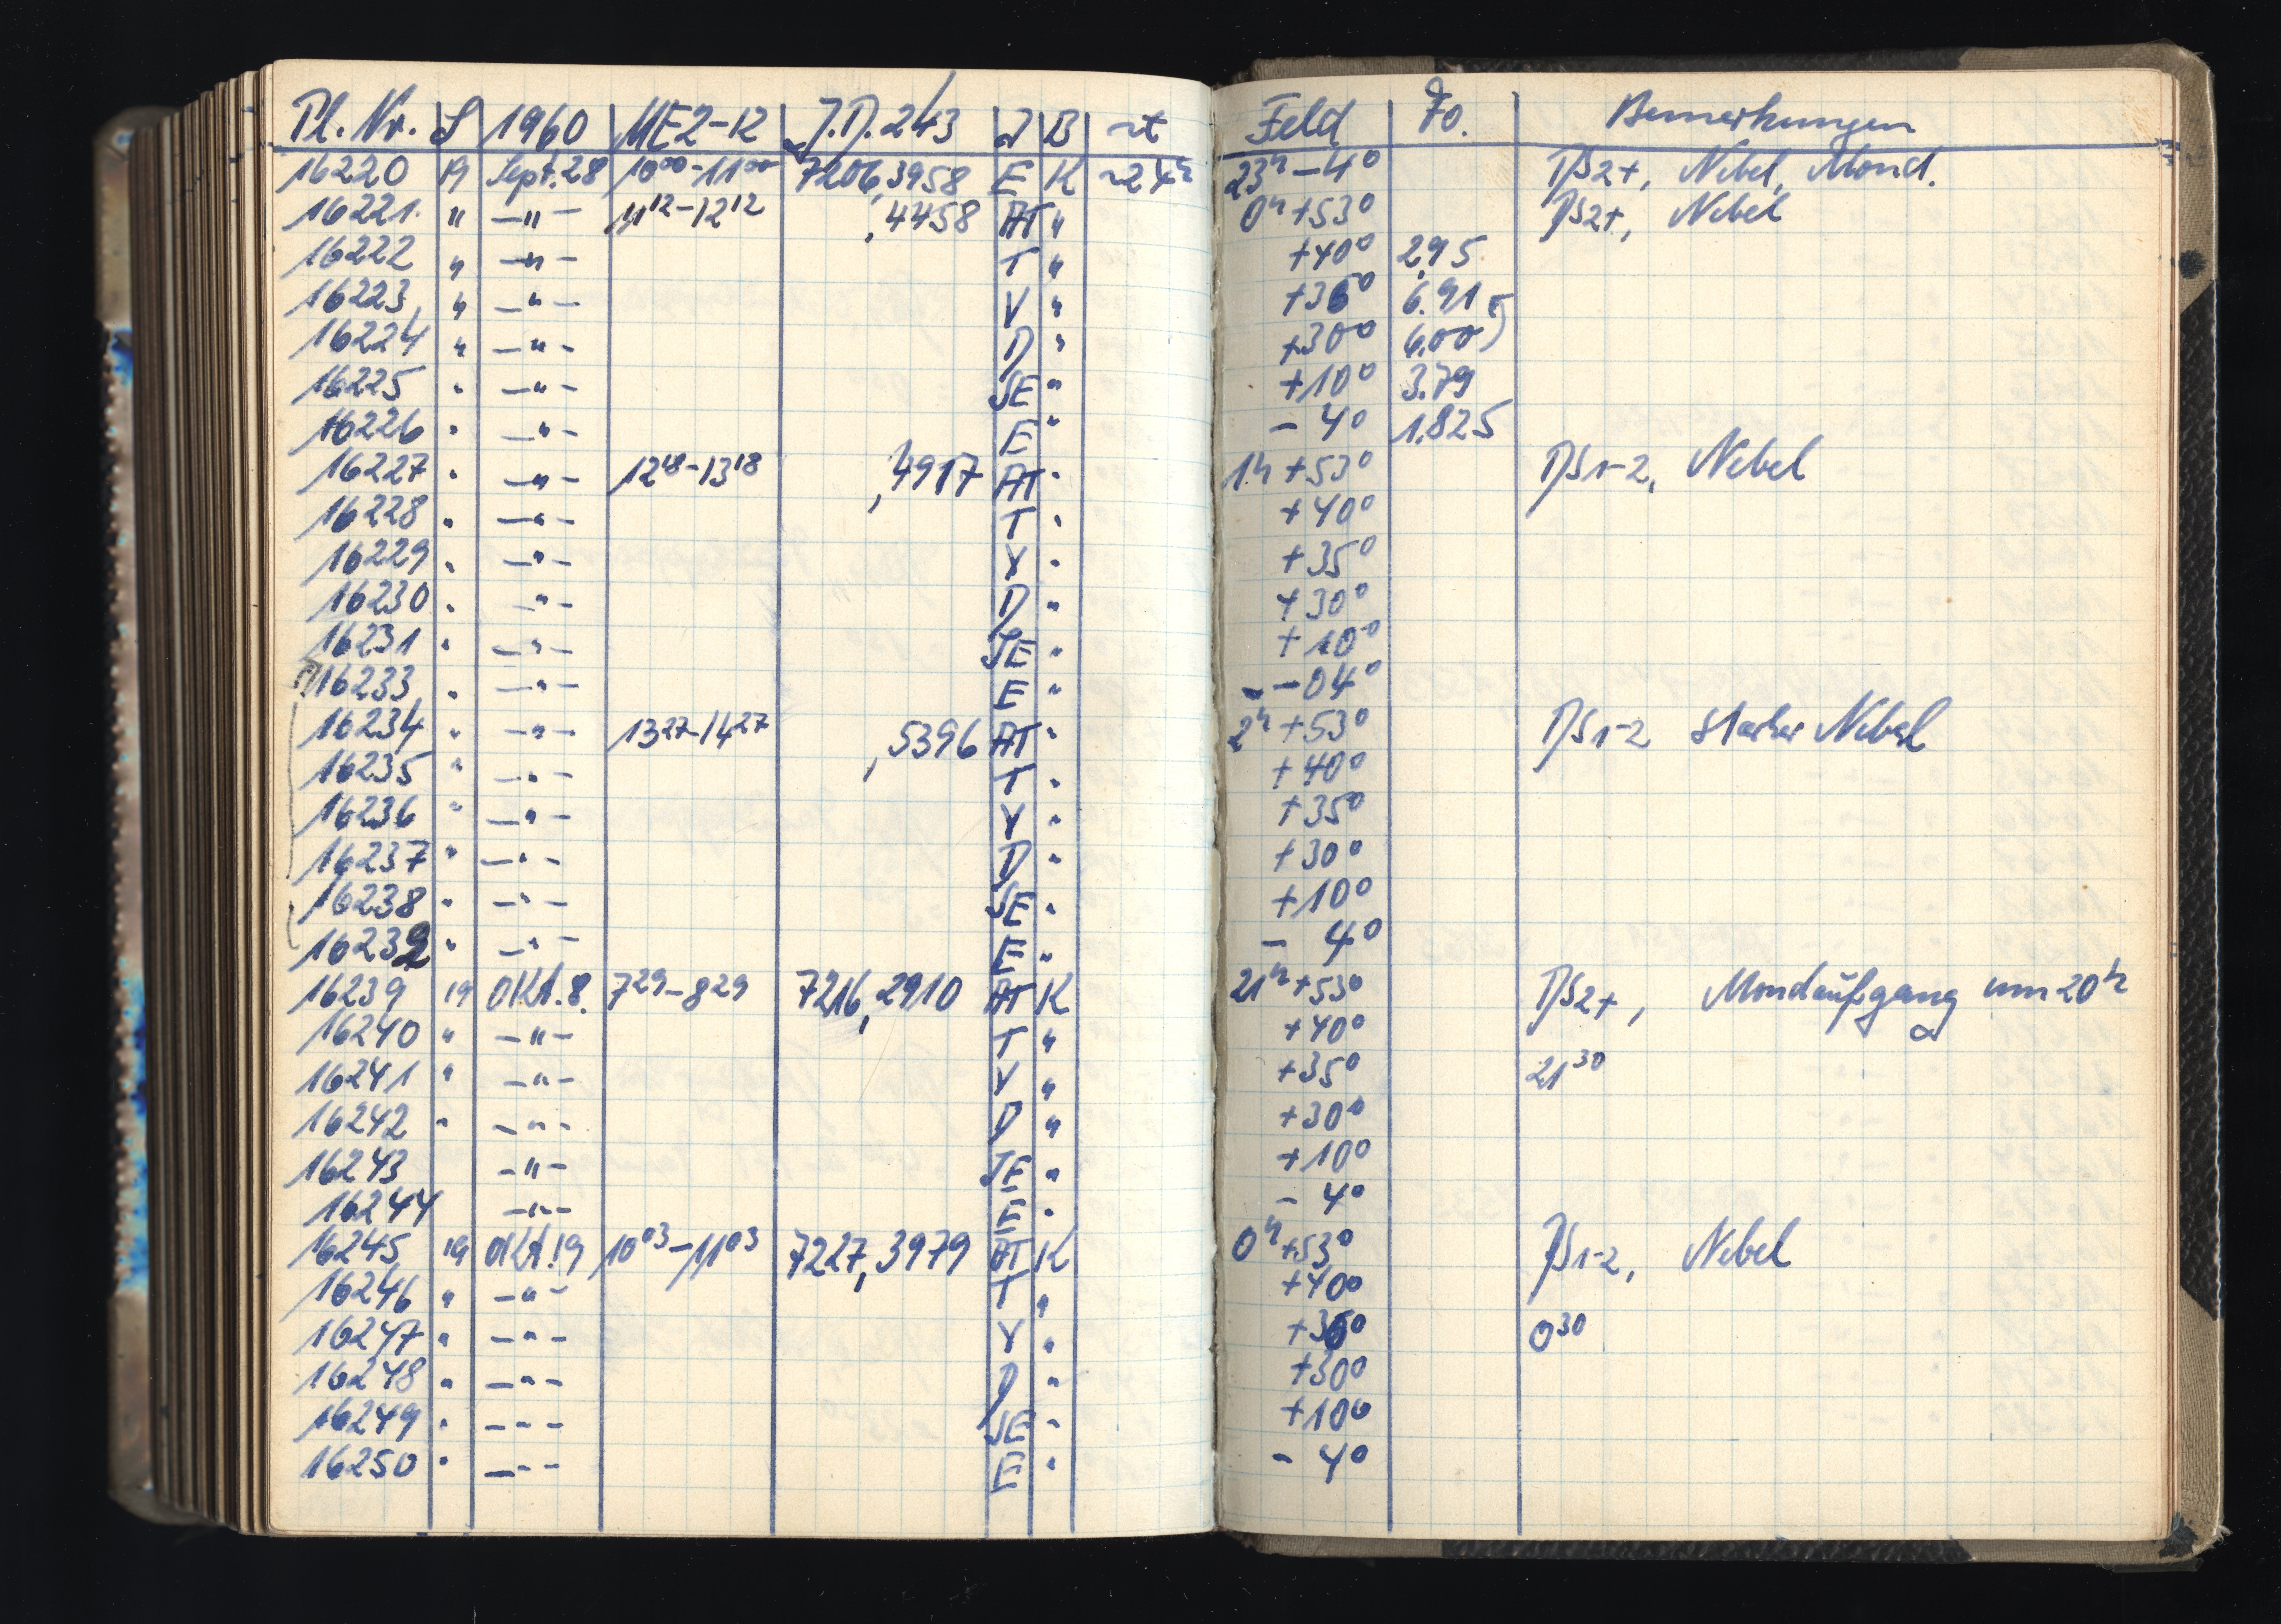 Pl. Nr. S 1960 ME2-12 J.D. 243 J B ~t Feld Fo. Bemerkungen
16220 19 Sept. 28 10⁰⁰-11⁰⁰ 7206,3958 E K ~24ʰ 23ʰ -4° DS2+, Nebel, Mond.
16221 " -"- 11¹²-12¹² ,4458 AT " 0ʰ +53° DS2+, Nebel
16222 " -"- T " +40° 2,95
16223 " -"- V " +36° 6.91
16224 " -"- D " +30° 6.00
16225 " -"- JE " +10° 3.79
16226 " -"- E " - 4° 1.825
16227 " -"- 12¹⁸-13¹⁸ ,4917 AT " 1ʰ +53° DS1-2, Nebel
16228 " -"- T " +40°
16229 " -"- V " +35°
16230 " -"- D " +30°
16231 " -"- JE " +10°
16233 " -"- E " -04°
16234 " -"- 13²⁷-14²⁷ ,5396 AT " 2ʰ +53° DS1-2 starker Nebel
16235 " -"- T " +40°
16236 " -"- V " +35°
16237 " -"- D " +30°
16238 " -"- JE " +10°
16232 " -"- E " - 4°
16239 19 Okt. 8. 7²⁹-8²⁹ 7216,2910 AT K 21ʰ +53° DS2+, Mondaufgang um 20ʰ
16240 " -"- T " +40°
16241 " -"- V " +35° 21³⁰
16242 " -"- D " +30°
16243 -"- JE " +10°
16244 -"- E " - 4°
16245 19 Okt. 19 10⁰³-11⁰³ 7227,3979 AT K 0ʰ +53° DS1-2, Nebel
16246 " -"- T " +40°
16247 " -"- V " +36° 0³⁰
16248 " -"- D " +30°
16249 " -"- JE " +10°
16250 " -"- E " - 4°